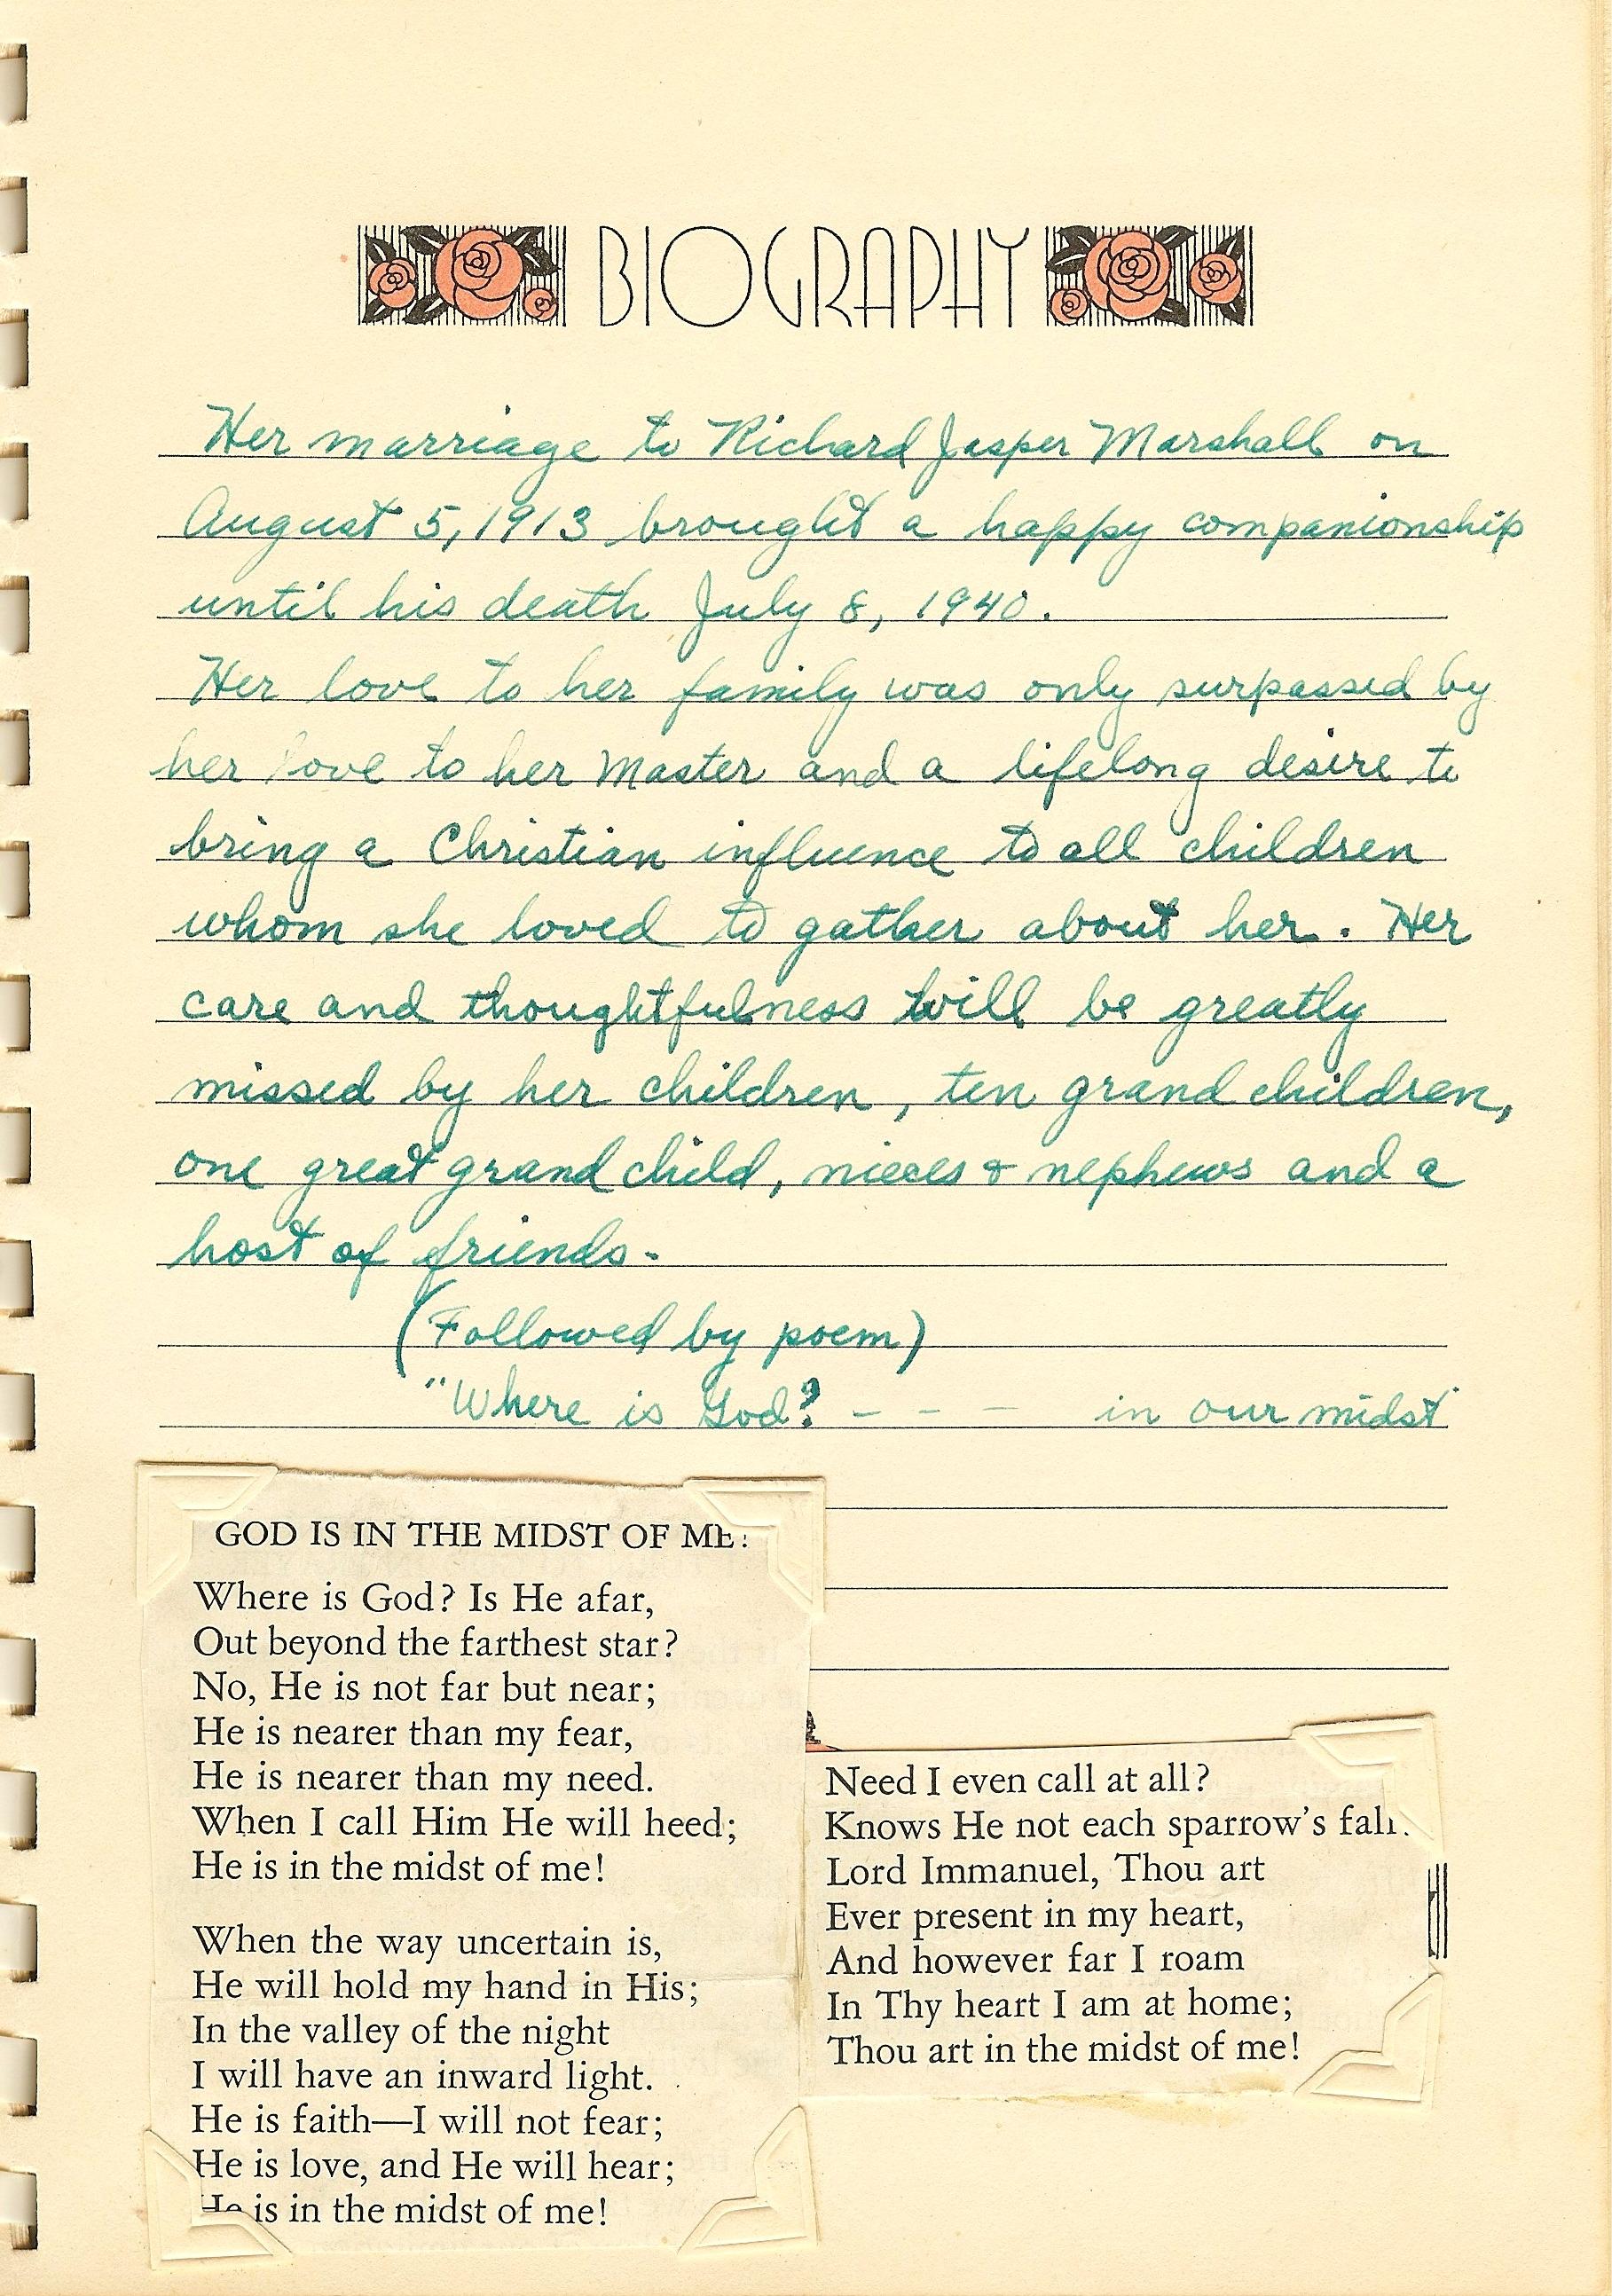 BIOGRAPHY
Her marriage to Richard Jasper Marshall on
August 5, 1913 brought a happy companionship
until his death July 8, 1940.
Her love to her family was only surpassed by
her love to her Master and a lifelong desire to
bring a Christian influence to all children
whom she loved to gather about her. Her
care and thoughtfulness will be greatly
missed by her children, ten grand children,
one great grand child, nieces & nephews and a
host of friends.
(Followed by poem)
"Where is God? - - - in our midst"
GOD IS IN THE MIDST OF ME!
Where is God? Is He afar,
Out beyond the farthest star?
No, He is not far but near;
He is nearer than my fear,
He is nearer than my need.
When I call Him He will heed;
He is in the midst of me!
When the way uncertain is,
He will hold my hand in His;
In the valley of the night
I will have an inward light.
He is faith—I will not fear;
He is love, and He will hear;
He is in the midst of me!
Need I even call at all?
Knows He not each sparrow's fall
Lord Immanuel, Thou art
Ever present in my heart,
And however far I roam
In Thy heart I am at home;
Thou art in the midst of me!